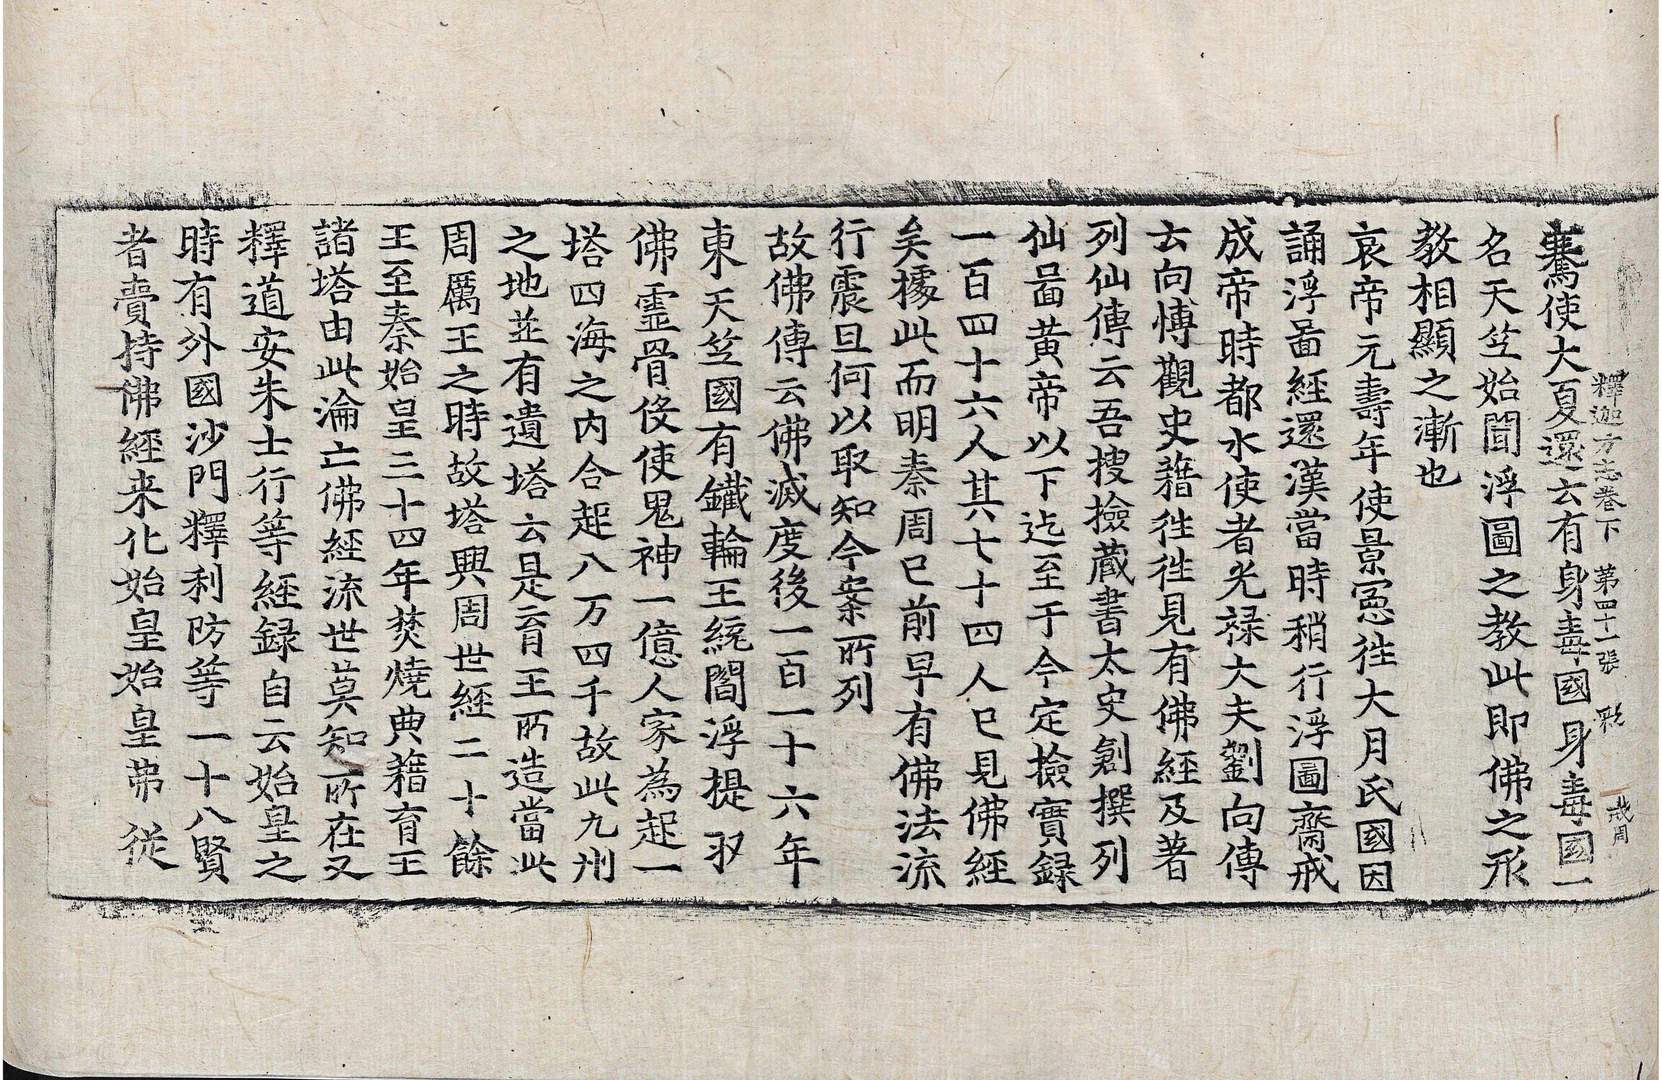 騫使大夏還云有身毒國身毒國一
釋迦方志卷下 第四十一張 彩
名天竺始聞浮圖之教此即佛之形
教相顯之漸也
哀帝元壽年使景憲往大月氏國因
誦浮啚經還漢當時稍行浮圖齋戒
成帝時都水使者光祿大夫劉向傳
云向博觀史籍徃徃見有佛經及著
列仙傳云吾搜撿藏書太史創撰列
仙啚黃帝以下迄至于今定撿實録
一百四十六人其七十四人已見佛經
矣據此而明秦周已前早有佛法流
行震旦何以取知今案所列
故佛傳云佛滅度後一百一十六年
東天竺國有鐵輪王統閻浮提収
佛霊骨伇使鬼神一億人家為起一
塔四海之内合起八万四千故此九州
之地並有遺塔云是育王所造當此
周厲王之時故塔興周世經二十餘
王至秦始皇三十四年焚燒典籍育王
諸塔由此淪亡佛經流世莫知所在又
釋道安朱士行等經録自云始皇之
時有外國沙門釋利防等一十八賢
者賷持佛經来化始皇始皇弗從